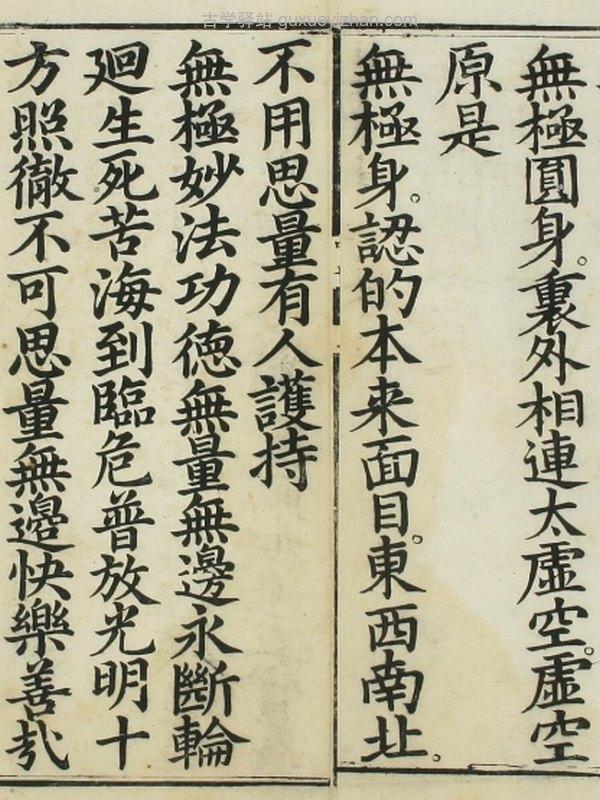 古学驿站 guxueyizhan.com
無極圓身。裏外相連太虛空。虛空
原是
無極身。認的本來面目。東西南北。
不用思量有人護持
無極妙法功德無量無邊永斷輪
廻生死苦海到臨危普放光明十
方照徹不可思量無邊快樂善哉